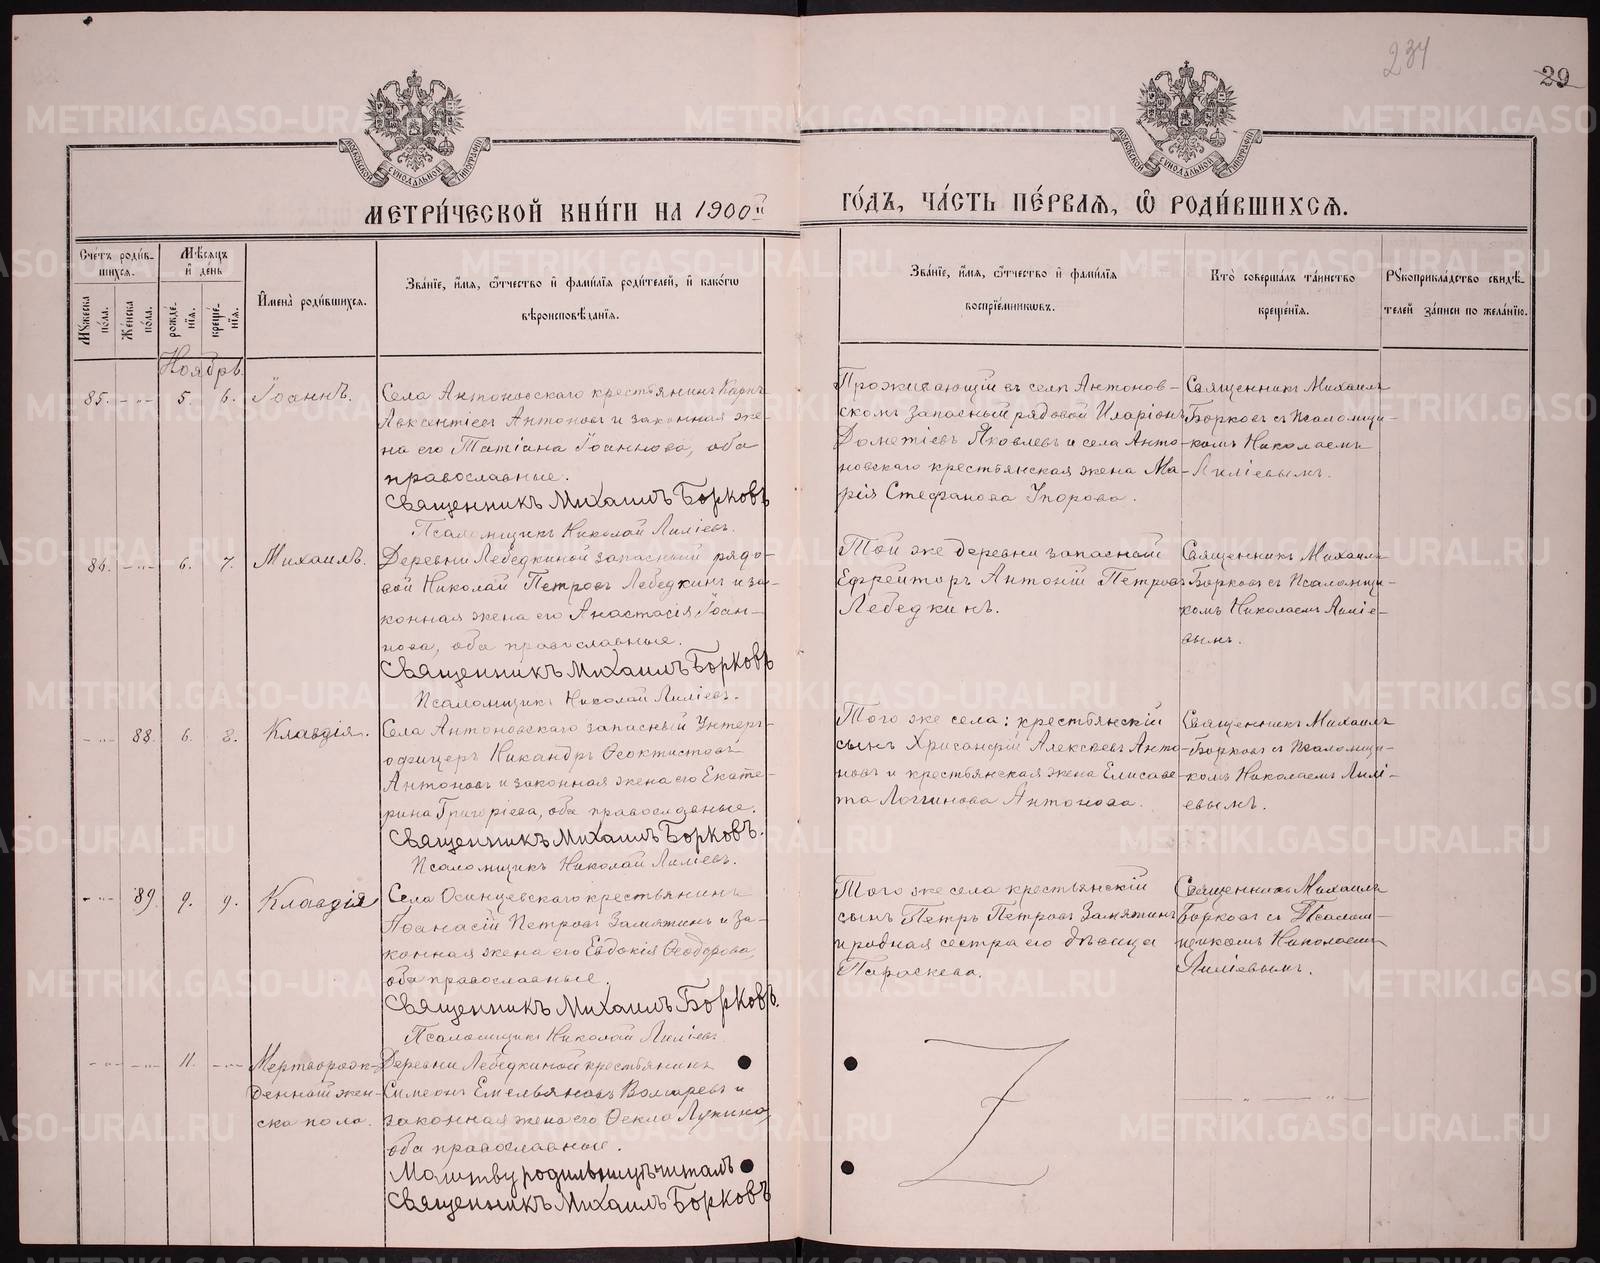 234
29
МЕТРИ́ЧЕСКОЙ КНИ́ГИ НА 1900й
ГО́ДЪ, ЧА́СТЬ ПЕ́РВАЯ, Ѡ РОДИ́ВШИХСЯ.
МОСКОВСКОЙ СѴНОДАЛЬНОЙ ТИПОГРАФІИ
МОСКОВСКОЙ СѴНОДАЛЬНОЙ ТИПОГРАФІИ
Сче́тъ роди́в-
шихся.
Мꙋжеска по́ла.
Же́нска по́ла.
Мѣ́сяцъ
и҆ де́нь
рожде́-
нїя.
креще́-
нїя.
И҆мена̀ роди́вшихся.
Зва́нїе, и҆́мя, ѻ҆́тчество и҆ фами́лїя роди́телей, и҆ како́гѡ
вѣроисповѣ́данїя.
Зва́нїе, и҆́мя, ѻ҆́тчество и҆ фами́лїя
воспрїе́мникѡвъ.
Кто̀ соверша́лъ та́инство
креще́нїя.
Рꙋкоприкла́дство свидѣ́-
телей за́писи по жела́нїю.
Ноябрь.
85. - „ - 5. 6. Іоаннъ.
Села Антоновскаго крестьянинъ Карпъ
Авксентіевъ Антоновъ и законная же-
на его Татіана Іоаннова, оба
православные.
Священникъ Михаилъ Борковъ
Псаломщикъ Николай Лиліевъ.
Проживающій въ селѣ Антонов-
скомъ запасный рядовой Иларіонъ
Дометіевъ Яковлевъ и села Анто-
новскаго крестьянская жена Ма-
рія Стефанова Упорова.
Священникъ Михаилъ
Борковъ съ Псаломщи-
комъ Николаемъ
Лиліевымъ.
86. - „ - 6. 7. Михаилъ.
Деревни Лебедкиной запасный рядо-
вой Николай Петровъ Лебедкинъ и за-
конная жена его Анастасія Іоан-
нова, оба православные.
Священникъ Михаилъ Борковъ
Псаломщикъ Николай Лиліевъ.
Той же деревни запасный
Ефрейторъ Антоній Петровъ
Лебедкинъ.
Священникъ Михаилъ
Борковъ съ Псаломщи-
комъ Николаемъ Лиліе-
вымъ.
- „ - 88. 6. 8. Клавдія.
Села Антоновскаго запасный Унтеръ-
офицеръ Никандръ Ѳеоктистовъ
Антоновъ и законная жена его Екате-
рина Григоріева, оба православные.
Священникъ Михаилъ Борковъ.
Псаломщикъ Николай Лиліевъ.
Того же села: крестьянскій
сынъ Хрисанфій Алексѣевъ Анто-
новъ и крестьянская жена Елисаве-
та Логгинова Антонова.
Священникъ Михаилъ
Борковъ съ Псаломщи-
комъ Николаемъ Лилі-
евымъ.
- „ - 89. 9. 9. Клавдія
Села Осинцевскаго крестьянинъ
Аѳанасій Петровъ Замятинъ и за-
конная жена его Евдокія Ѳеодорова,
оба православные.
Священникъ Михаилъ Борковъ.
Псаломщикъ Николай Лиліевъ.
Того же села крестьянскій
сынъ Петръ Петровъ Замятинъ
и родная сестра его дѣвица
Параскева.
Священникъ Михаилъ
Борковъ съ Псалом-
щикомъ Николаемъ
Лиліевымъ.
- „ - - „ - 11. - „ - Мертворож-
денный жен-
ска пола.
Деревни Лебедкиной крестьянинъ
Симеонъ Емельяновъ и
законная жена его Ѳекла Лукина,
оба православные.
Молитву родильницѣ читалъ
Священникъ Михаилъ Борковъ
- „ - „ -
METRIKI.GASO-URAL.RU